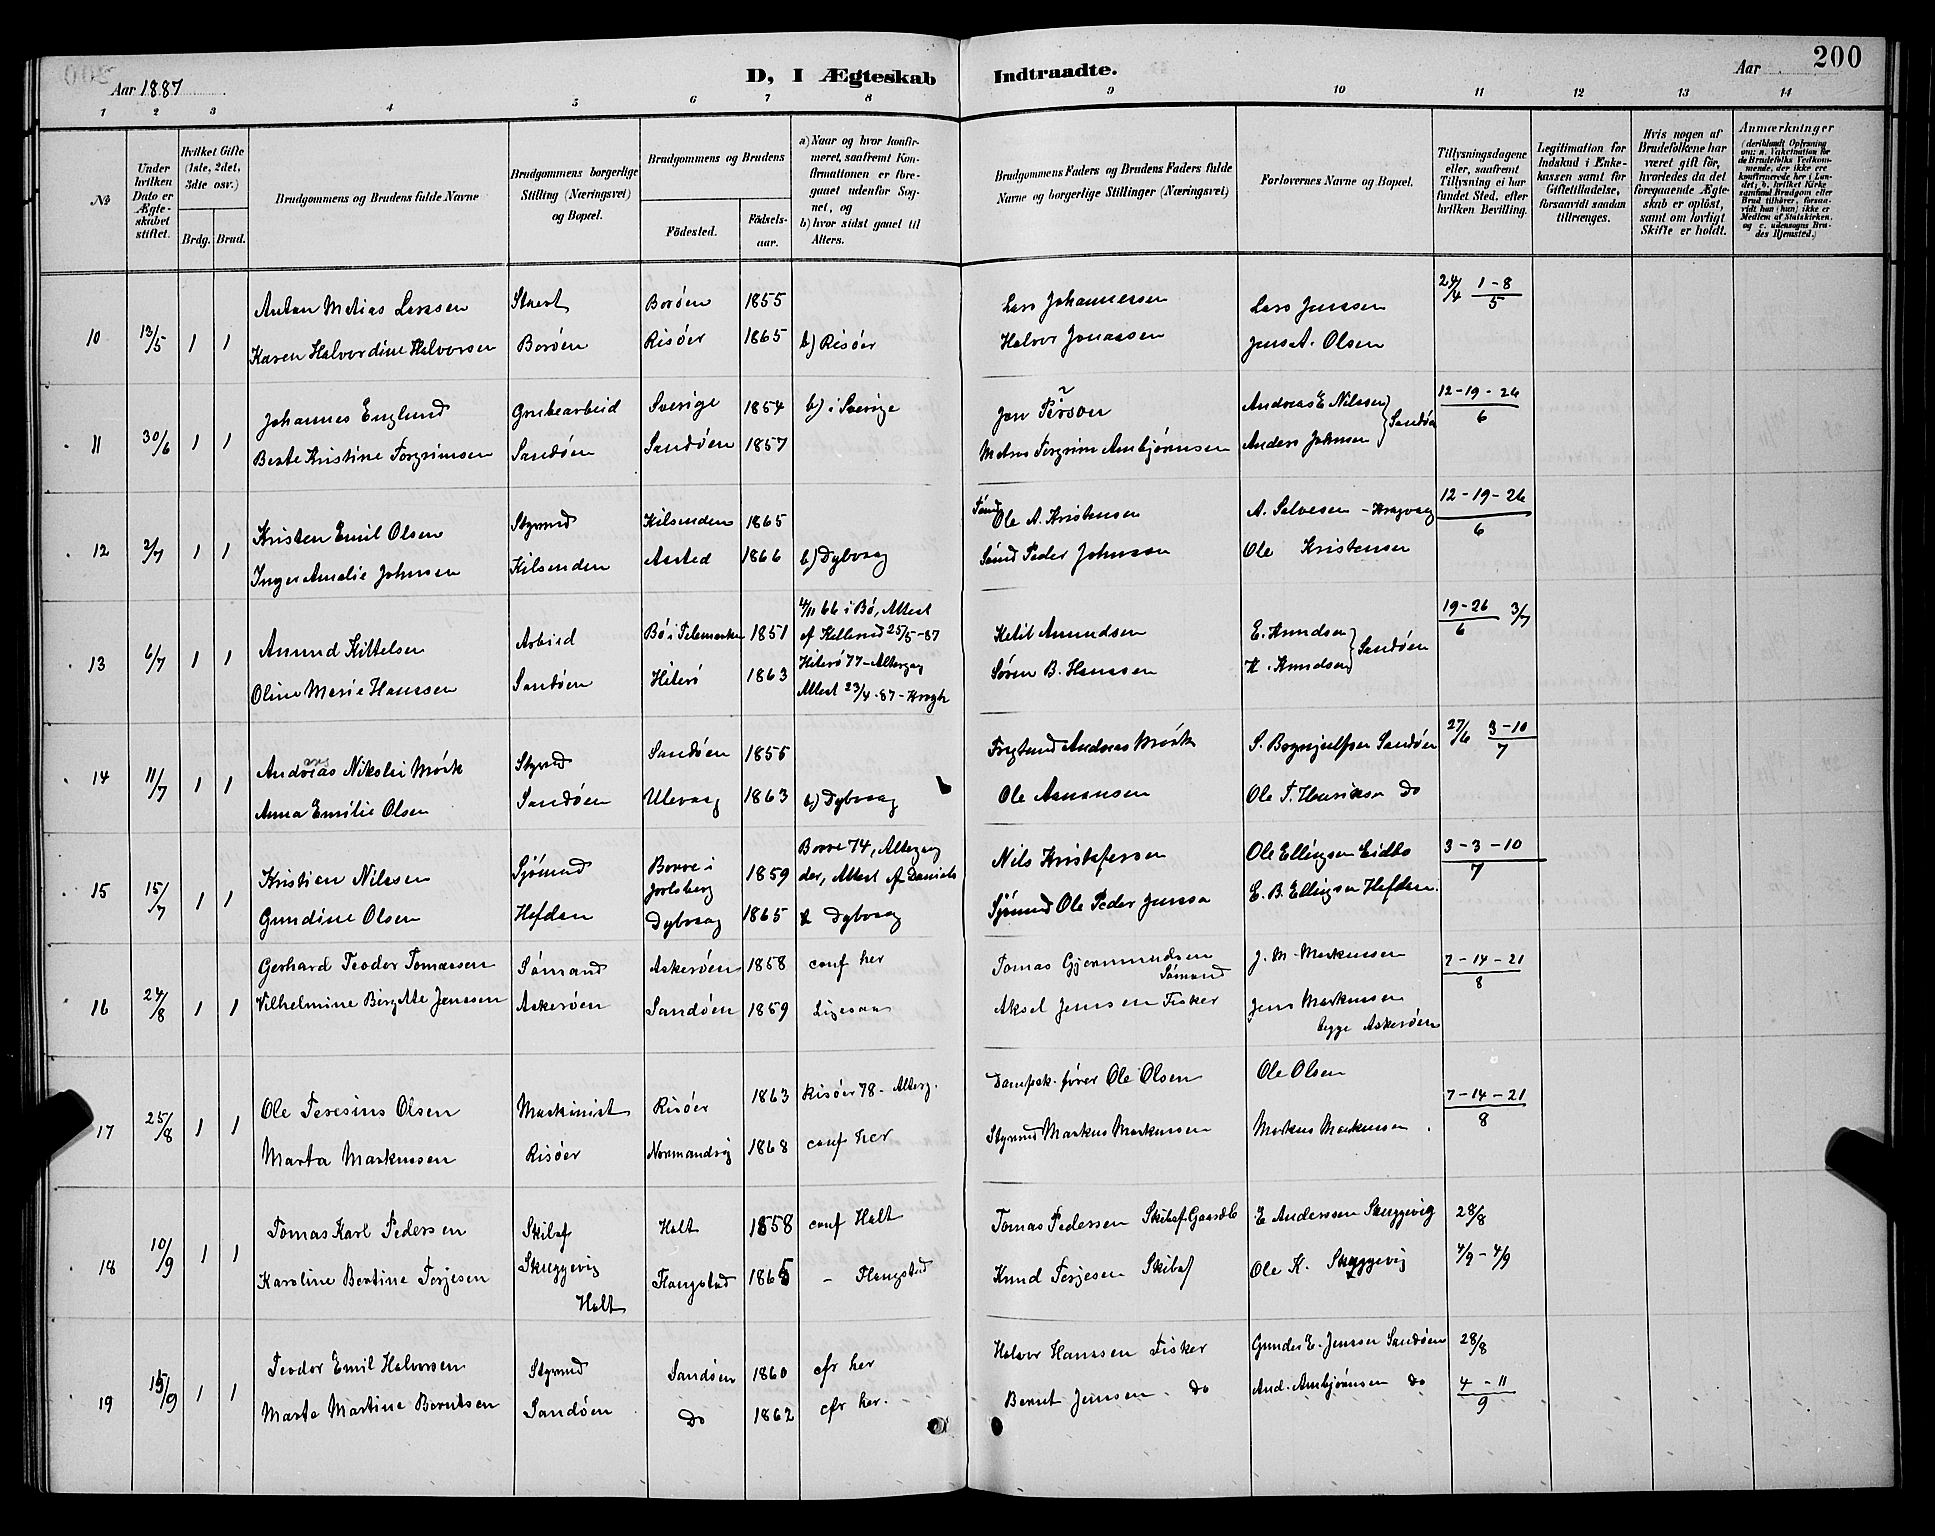 200
Aar 1887
D, I Ægteskab Indtraadte.
Aar
1 2 3 4 5 6 7 8 9 10 11 12 13 14
No
Under hvilken Dato er Ægte-skabet stiftet.
Hvilket Gifte (1ste, 2det, 3die osv.)
Brdg. Brud.
Brudgommens og Brudens fulde Navne
Brudgommens borgerlige Stilling (Næringsvei) og Bopæl.
Brudgommens og Brudens
Födested.
Födsels-aar.
a) Naar og hvor konfir-meret, saafremt Kon-firmationen er fore-gaaet udenfor Sog-net, og
b) hvor sidst gaaet til Alters.
Brudgommens Faders og Brudens Faders fulde Navne og borgerlige Stillinger (Næringsvei)
Forlovernes Navne og Bopæl.
Tillysningsdagene eller, saafremt Tillysning ei har fundet Sted, efter hvilken Bevilling.
Legitimation for Indskud i Enke-kassen samt for Giftetilladelse, forsaavidt saadan tiltrænges.
Hvis nogen af Brudefolkene har været gift för, hvorledes da det foregaaende Ægte-skab er oplöst, samt om lovligt Skifte er holdt.
Anmærkninger (deriblandt Oplysning om: a. Vakcination for de Brudefolks Vedkom-mende, der ikke ere konfirmerede her i Lan-det; b. hvilket Kirke-samfund Brudgom eller Brud tilhörer, forsaa-vidt han (hun) ikke er Medlem af Statskirken, og c. udensogns Bru-des Hjemsted.)
10 13/5 1 1
Anton Matias Larssen Borøen 1855 Lars Johannessen Lars Jenssen 24/4 1-8/5
Karen Halvordine Halvorsen Borøen Risøer 1865 b) Risøer Halvor Jonassen Jens A. Olsen
11 30/6 1 1
Johannes Englund Grubearbeid Sverige 1854 b) i Sverige Jon Person Andreas E Nilssen 12-19-26/6
Berte Kristine Torgrimsen Sandøen Sandøen 1857 Matros Torgrim Ambjørnsen Anders Johnsen Sandøen
12 2/7 1 1
Kristen Emil Olsen Styrmd Kilsenden 1865 Ole A. Kristensen A. Salvesen - Kragvaag 12-19-26/6
Inger Amalie Johnsen Kilsenden Aasted 1866 b) Dybvaag Sömd Peder Johnson Ole Kristensen
13 6/7 1 1
Amund Kittelsen Arbeid Bø i Telemarken 1851 4/11 66 i Bø, Attest af 25/5-87 Ketil Amundsen E. Knudsen 19-26/6 3/7
Oline Marie Hanssen Sandøen Hiterö 1863 Hiterö 77 - Altergag Attest 23/4-87 - Søren B. Hanssen K. Knudsen Sandøen
14 11/7 1 1
Andreas Nikolai Mørk Styrmd Sandøen 1855 Andreas Mørk Sandøen 27/6 3-10/7
Anna Emilie Olsen Sandøen Ulevaag 1863 b) Dybvaag Ole Asmonsen Ole T. Henriksen do
15 15/7 1 1
Kristian Nilssen Sjömd Borre i Jarlsberg 1859 Borre 74, Altergag der, Attest af Daniels Nils Kristofersen Ole Ellingsen Eidbo 3-3-10/7
Gundine Olsen Hefden Dybvaag 1865 Dybvaag Sjömd Ole Peder Jensen E. B. Ellingsen Hefden
16 24/8 1 1
Gerhard Teodor Tomassen Sømand Askerøen 1858 conf her Tomas Gjermundsen Sømand J. M. Markussen 7-14-21/8
Vilhelmine Birgitte Jenssen Askerøen Sandøen 1859 Ligesaa Aksel Jenssen Fisker Jens Markussen begge Askerøen
17 25/8 1 1
Ole Teresius Olsen Maskinist Risøer 1863 Risøer 78 - Alterg. Dampsk. fører Ole Olsen Ole Olsen 7-14-21/8
Marta Markussen Risøer Normandvig 1868 conf her Styrmd Markus Markussen Markus Markussen
18 10/9 1 1
Tomas Karl Pedersen Skibsf Holt 1858 conf Holt Tomas Pedersen Skibsf E Anderssen Skuggevig 28/8
Karoline Bertine Terjesen Skuggevig Holt Flangstad 1865 - Flangstad Knud Terjesen Skibsf Ole K. Skuggevig 4/9-4/9
19 15/9 1 1
Teodor Emil Halvorsen Styrmd Sandøen 1860 cfr her Halvor Hanssen Fisker Gunder E. Jenssen Sandøen 28/8
Marte Martine Berntsen Sandøen do 1862 cfr her. Bernt Jenssen do And. Ambjörnsen do 4-11/9